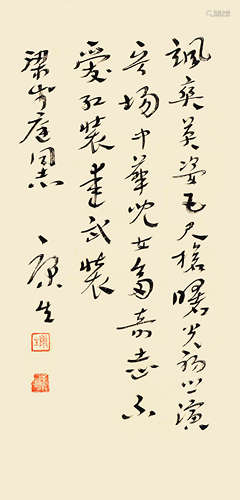 飒爽英姿五尺枪曙光初照演
兵场中华儿女多奇志不
爱红装爱武装
梁岵庐同志
康生